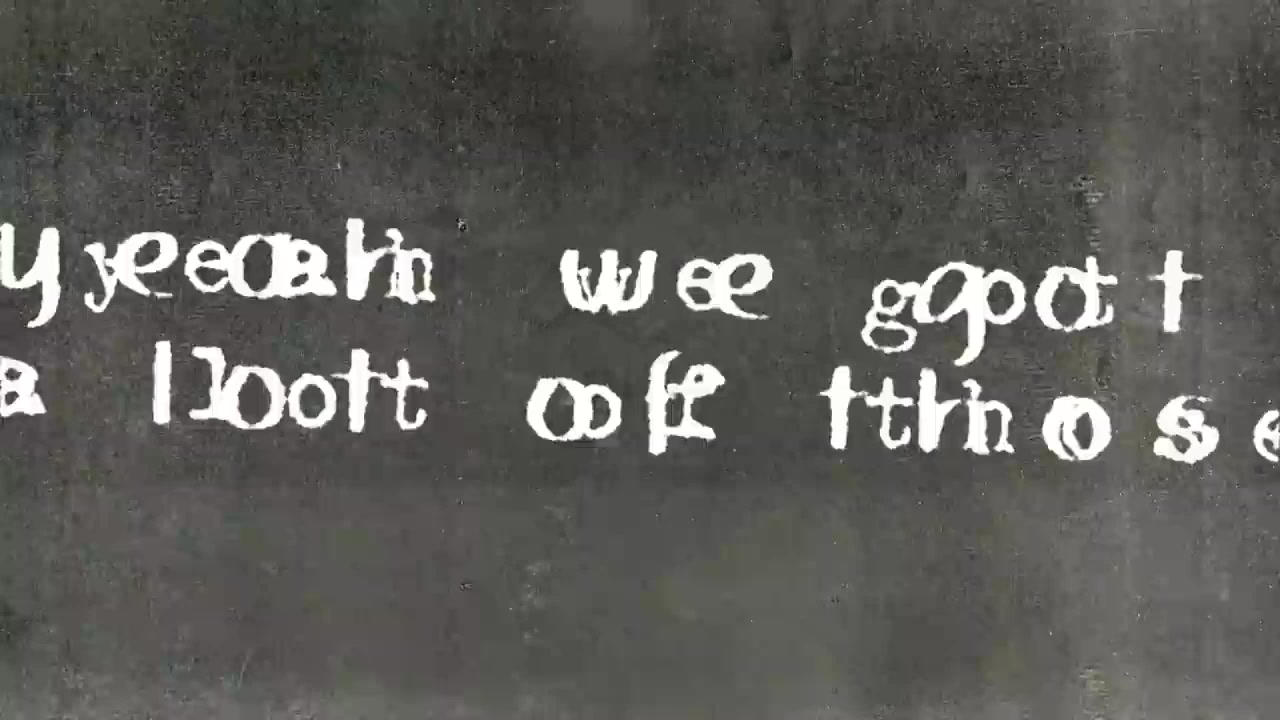 yeah we got
a lot of those